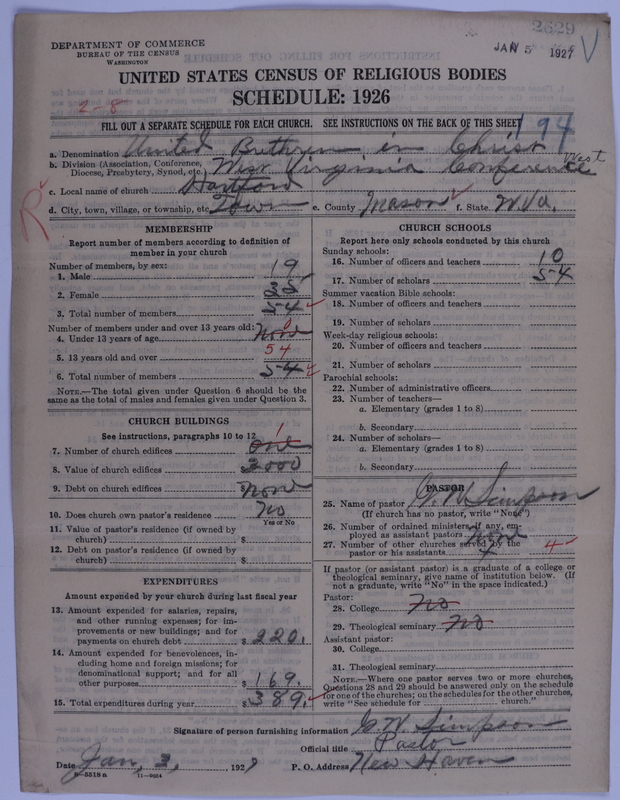 2629
JAN 5 1927
DEPARTMENT OF COMMERCE
BUREAU OF THE CENSUS
WASHINGTON
UNITED STATES CENSUS OF RELIGIOUS BODIES
SCHEDULE: 1926
2-8
FILL OUT A SEPARATE SCHEDULE FOR EACH CHURCH. SEE INSTRUCTIONS ON THE BACK OF THIS SHEET
194
a. Denomination United Brethren in Christ
b. Division (Association, Conference, Diocese, Presbytery, Synod, etc.) West Virginia Conference West
c. Local name of church Hartford
d. City, town, village, or township, etc. Town e. County Mason f. State W.Va.
R
MEMBERSHIP
Report number of members according to definition of
member in your church
Number of members, by sex:
1. Male 19
2. Female 35
3. Total number of members 54
Number of members under and over 13 years old:
4. Under 13 years of age None 0
5. 13 years old and over 54
6. Total number of members 54
NOTE.—The total given under Question 6 should be the
same as the total of males and females given under Question 3.
CHURCH BUILDINGS
See instructions, paragraphs 10 to 12
7. Number of church edifices one 1
8. Value of church edifices 2000
9. Debt on church edifices None
10. Does church own pastor's residence No
Yes or No
11. Value of pastor's residence (if owned by
church) $
12. Debt on pastor's residence (if owned by
church) $
EXPENDITURES
Amount expended by your church during last fiscal year
13. Amount expended for salaries, repairs,
and other running expenses; for im-
provements or new buildings; and for
payments on church debt $ 220.
14. Amount expended for benevolences, in-
cluding home and foreign missions; for
denominational support; and for all
other purposes $ 169.
15. Total expenditures during year $ 389.
CHURCH SCHOOLS
Report here only schools conducted by this church
Sunday schools:
16. Number of officers and teachers 10
17. Number of scholars 54
Summer vacation Bible schools:
18. Number of officers and teachers
19. Number of scholars
Week-day religious schools:
20. Number of officers and teachers
21. Number of scholars
Parochial schools:
22. Number of administrative officers
23. Number of teachers—
a. Elementary (grades 1 to 8)
b. Secondary
24. Number of scholars—
a. Elementary (grades 1 to 8)
b. Secondary
PASTOR
25. Name of pastor G. W. Simpson
(If church has no pastor, write "None")
26. Number of ordained ministers, if any, em-
ployed as assistant pastors None
27. Number of other churches served by the
pastor or his assistants 4 4
If pastor (or assistant pastor) is a graduate of a college or
theological seminary, give name of institution below. (If
not a graduate, write "No" in the space indicated.)
Pastor:
28. College No
29. Theological seminary No
Assistant pastor:
30. College
31. Theological seminary
NOTE.—Where one pastor serves two or more churches,
Questions 28 and 29 should be answered only on the schedule
for one of the churches; on the schedules for the other churches,
write "See schedule for church."
Signature of person furnishing information G. W. Simpson
Official title Pastor
Date Jan, 3, 1927 P. O. Address New Haven
8-5518a 11-9654